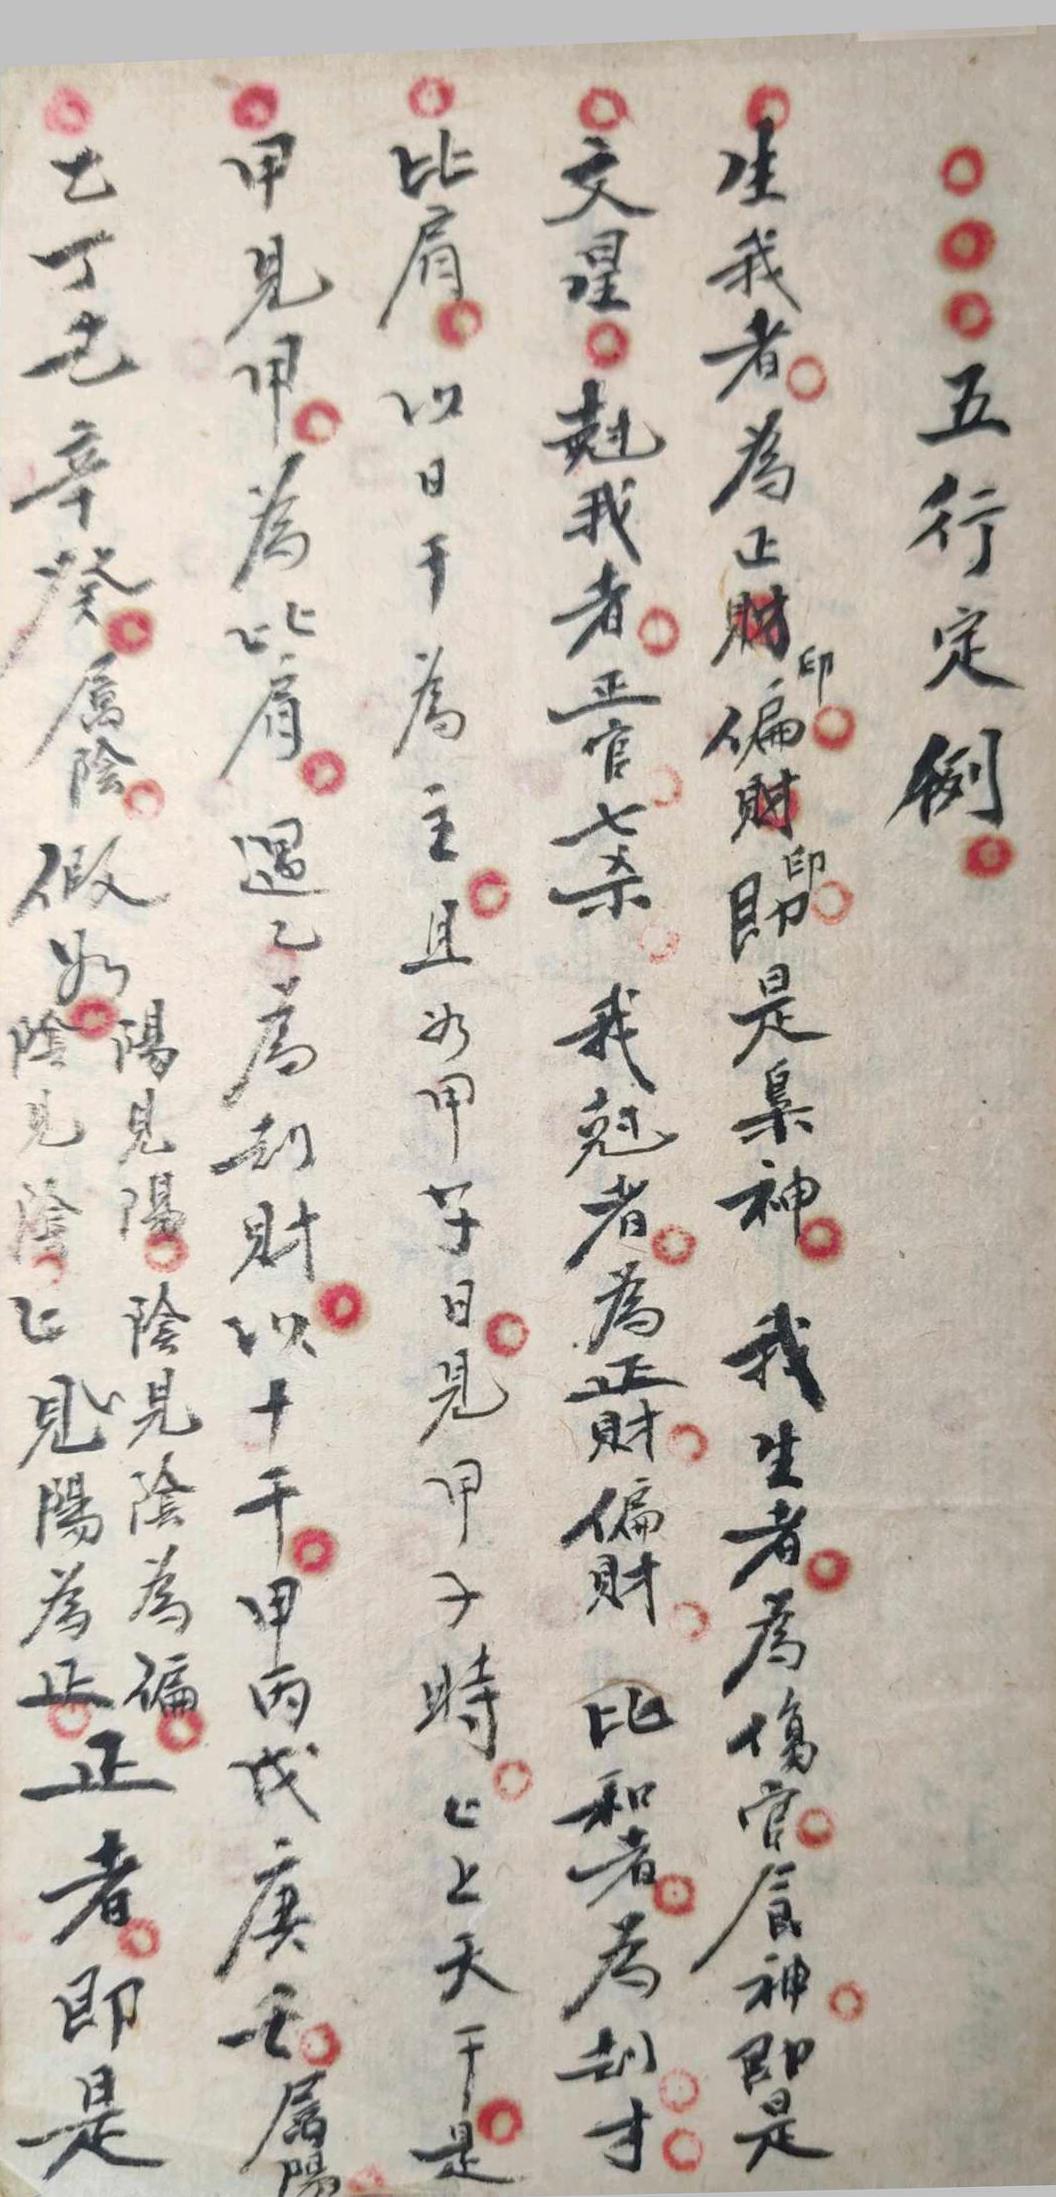 五行定例
生我者為正財印偏財印即是梟神我生者為傷官食神即是
文星尅我者正官七杀我尅者為正財偏財比和者為刦才
比肩以日干為主且如甲子日見甲子時上上天干是
甲見甲為比肩遇乙為刦財以十干甲丙戊庚壬屬陽
乙丁己辛癸屬陰假如
陽見陽陰見陰為偏
陰見陰上見陽為正
正者即是